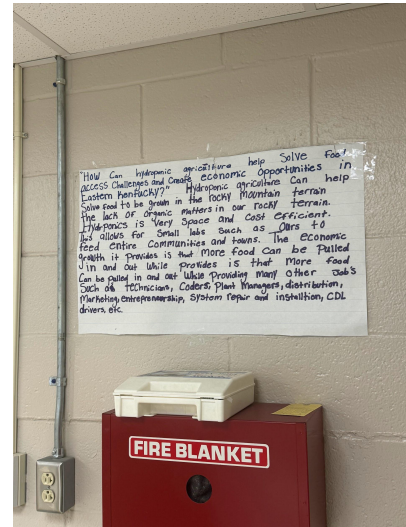 "How Can hydroponic agriculture help Solve Food
access Challenges and Create economic Opportunities in
Eastern Kentucky?" Hydroponic agriculture Can help
Solve Food to be grown in the rocky Mountain terrain
the lack OF Organic Matters in our rocky terrain.
Hydroponics is Very Space and Cost efficient.
This allows for Small labs Such as Ours to
feed entire Communities and towns. The economic
growth it Provides is that More food Can be Pulled
in and out While Provides is that More food
Can be pulled in and out While Providing Many other Job's
Such as technicians, Coders, Plant Managers, distribution,
Marketing, entrepreneurship, System repair and installtion, CDL
drivers, etc.
FIRE BLANKET